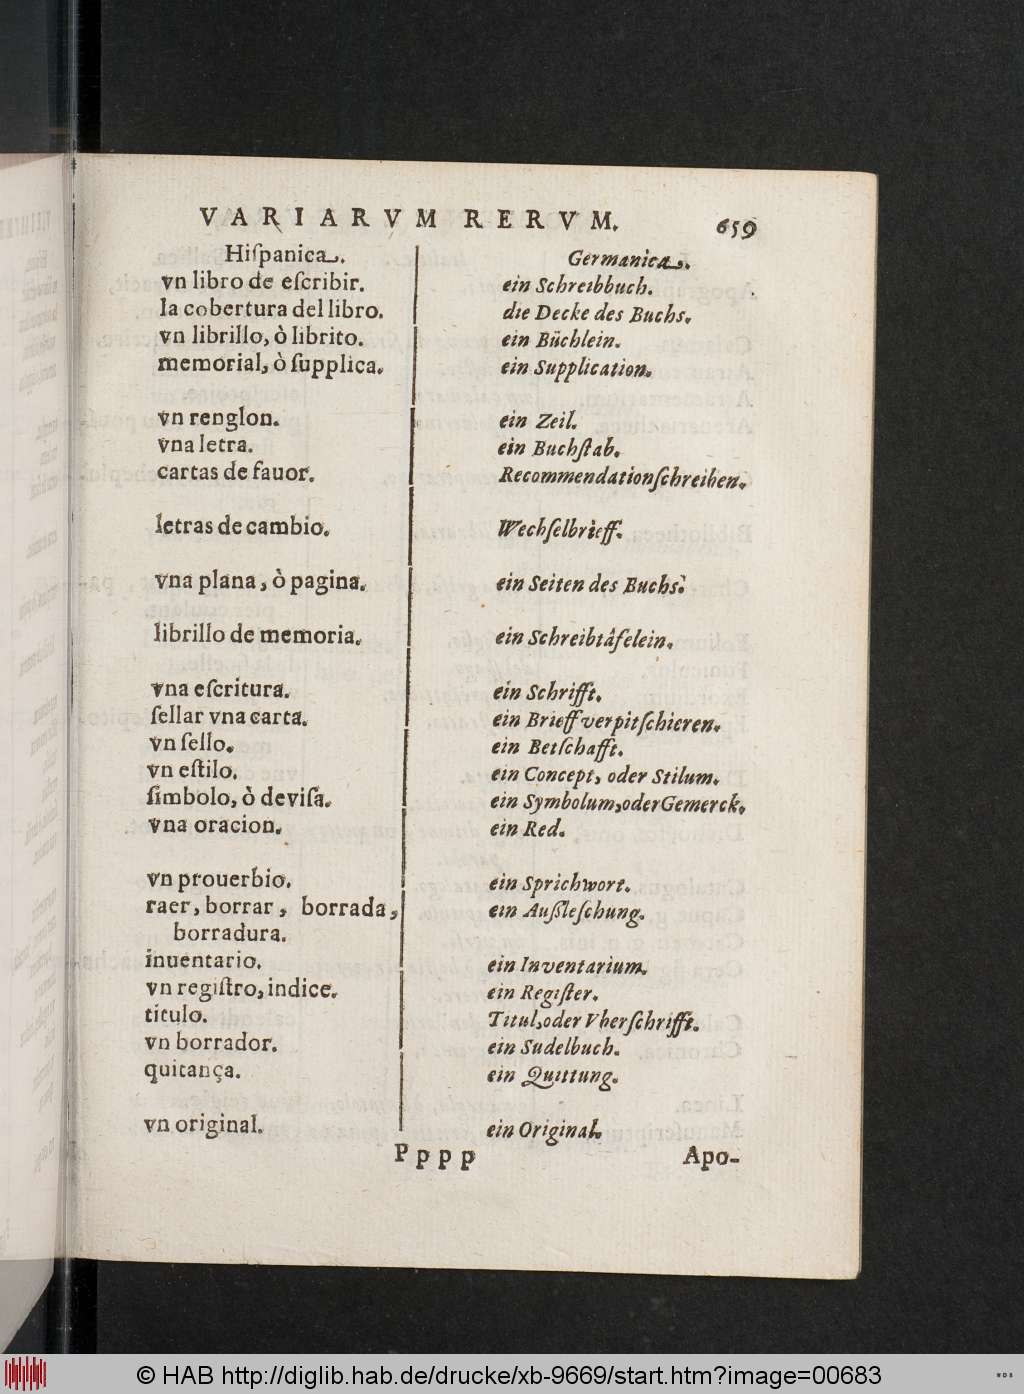 VARIARVM RERVM. 659
Hiſpanica. Germanica.
vn libro de eſcribir. ein Schreibbuch.
la cobertura del libro. die Decke des Buchs.
vn librillo, ò librito. ein Büchlein.
memorial, ò ſupplica. ein Supplication.
vn renglon. ein Zeil.
vna letra. ein Buchſtab.
cartas de fauor. Recommendationſchreiben.
letras de cambio. Wechſelbrieff.
vna plana, ò pagina. ein Seiten des Buchs.
librillo de memoria. ein Schreibtåfelein.
vna eſcritura. ein Schrifft.
ſellar vna carta. ein Brieff verpitſchieren.
vn ſello. ein Betſchafft.
vn eſtilo. ein Concept, oder Stilum.
ſimbolo, ò deviſa. ein Symbolum, oder Gemerck.
vna oracion. ein Red.
vn prouerbio. ein Sprichwort.
raer, borrar, borrada, ein Außleſchung.
borradura.
inuentario. ein Inventarium.
vn regiſtro, indice. ein Regiſter.
titulo. Titul, oder Vberſchrifft.
vn borrador. ein Sudelbuch.
quitança. ein Quittung.
vn original. ein Original.
Pppp Apo-
© HAB http://diglib.hab.de/drucke/xb-9669/start.htm?image=00683